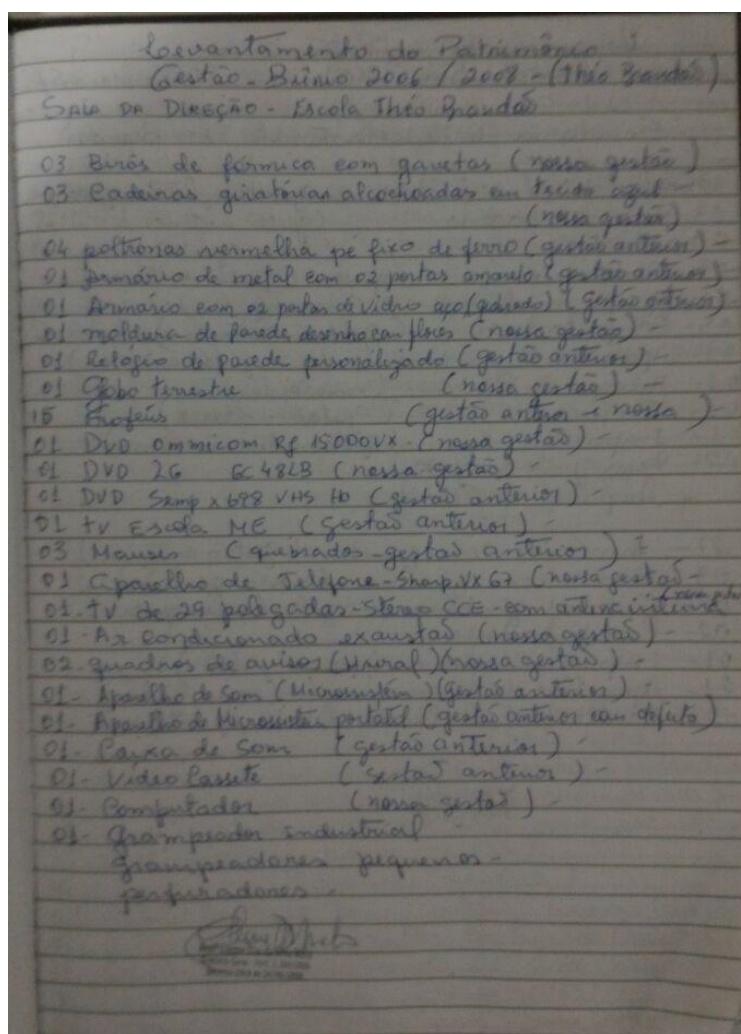 Levantamento do Patrimônio
Gestão - Biênio 2006 / 2008 - (Théo Brandão)
SALA DA DIREÇÃO - Escola Théo Brandão
03 Birôs de fórmica com gavetas (nossa gestão)
03 Cadeiras giratórias alcochoadas em tecido azul -
(nossa gestão)
04 poltronas vermelha pé fixo de ferro (gestão anterior) -
01 Armário de metal com 02 portas amarelo (gestão anterior)
01 Armário com 02 portas de vidro aço (quebrado) (gestão anterior) -
01 moldura de parede desenho com flores (nossa gestão) -
01 Relógio de parede personalizado (gestão anterior) -
01 Globo terrestre (nossa gestão) -
15 Troféus (gestão anterior e nossa) -
01 DVD Ommicom. Rf 15000VX - (nossa gestão) -
01 DVD 2G GC48LB (nossa gestão) -
01 DVD Semp x 698 VHS HD (gestão anterior) -
01 tv Escola ME (gestão anterior) -
03 Mauses (quebrados - gestão anterior) -
01 Aparelho de Telefone - Sharp. VX 67 (nossa gestão -
01. tV de 29 polegadas - Stéreo CCE - com antena interna
01 - Ar condicionado exaustão (nossa gestão) -
02. quadros de avisos (Mural) (nossa gestão) -
01 - Aparelho de Som (Microsistém) (gestão anterior) -
01 - Aparelho de Microsistém portatil (gestão anterior com defeito)
01 - Caixa de Som (gestão anterior) -
01 - Video Cassete (gestão anterior) -
01 - Computador (nossa gestão) -
01 - Grampeador industrial -
Grampeadores pequenos -
perfuradores -